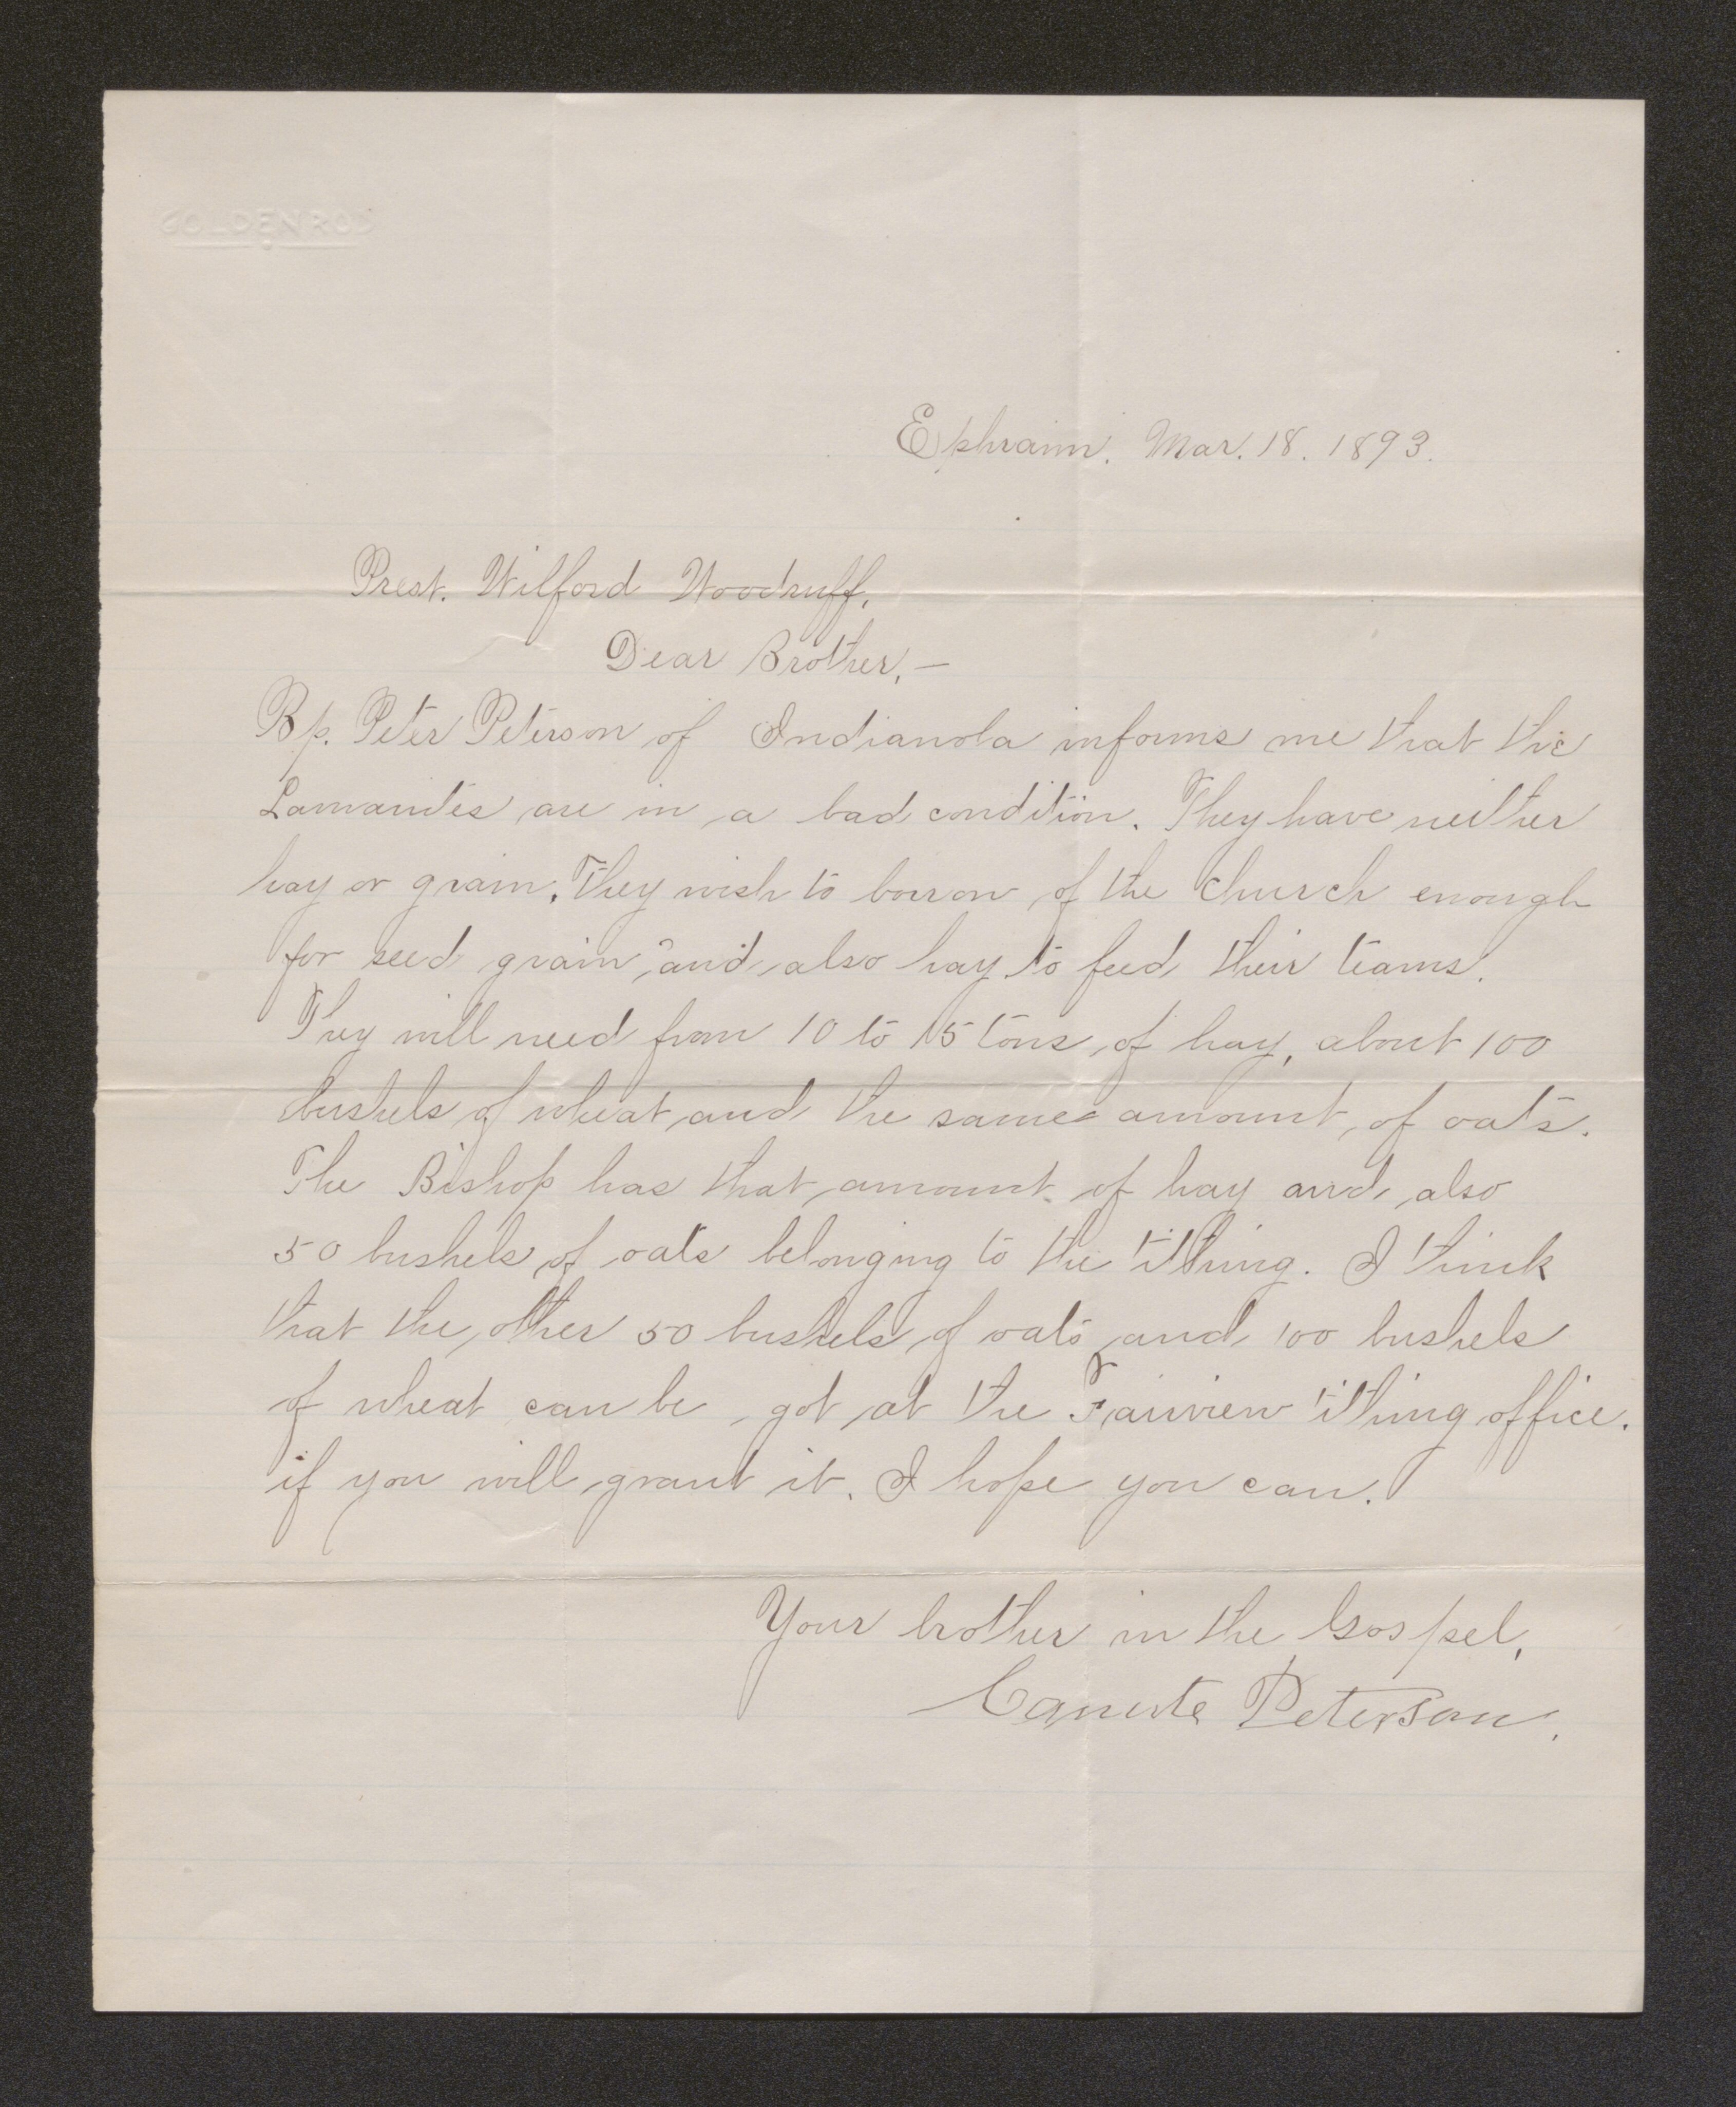 GOLDENROD
Ephraim. Mar. 18. 1893.
Prest. Wilford Woodruff,
Dear Brother,—
Bp. Peter Peterson of Indianola informs me that the
Lamanites are in a bad condition. They have neither
hay or grain. They wish to borrow of the Church enough
for seed grain, and also hay to feed their teams.
They will need from 10 to 15 tons of hay, about 100
bushels of wheat and the same amount of oats.
The Bishop has that amount of hay and also
50 bushels of oats belonging to the tithing. I think
that the other 50 bushels of oats and 100 bushels
of wheat can be got at the Fairview tithing office.
if you will grant it. I hope you can.
Your brother in the Gospel,
Canute Peterson.